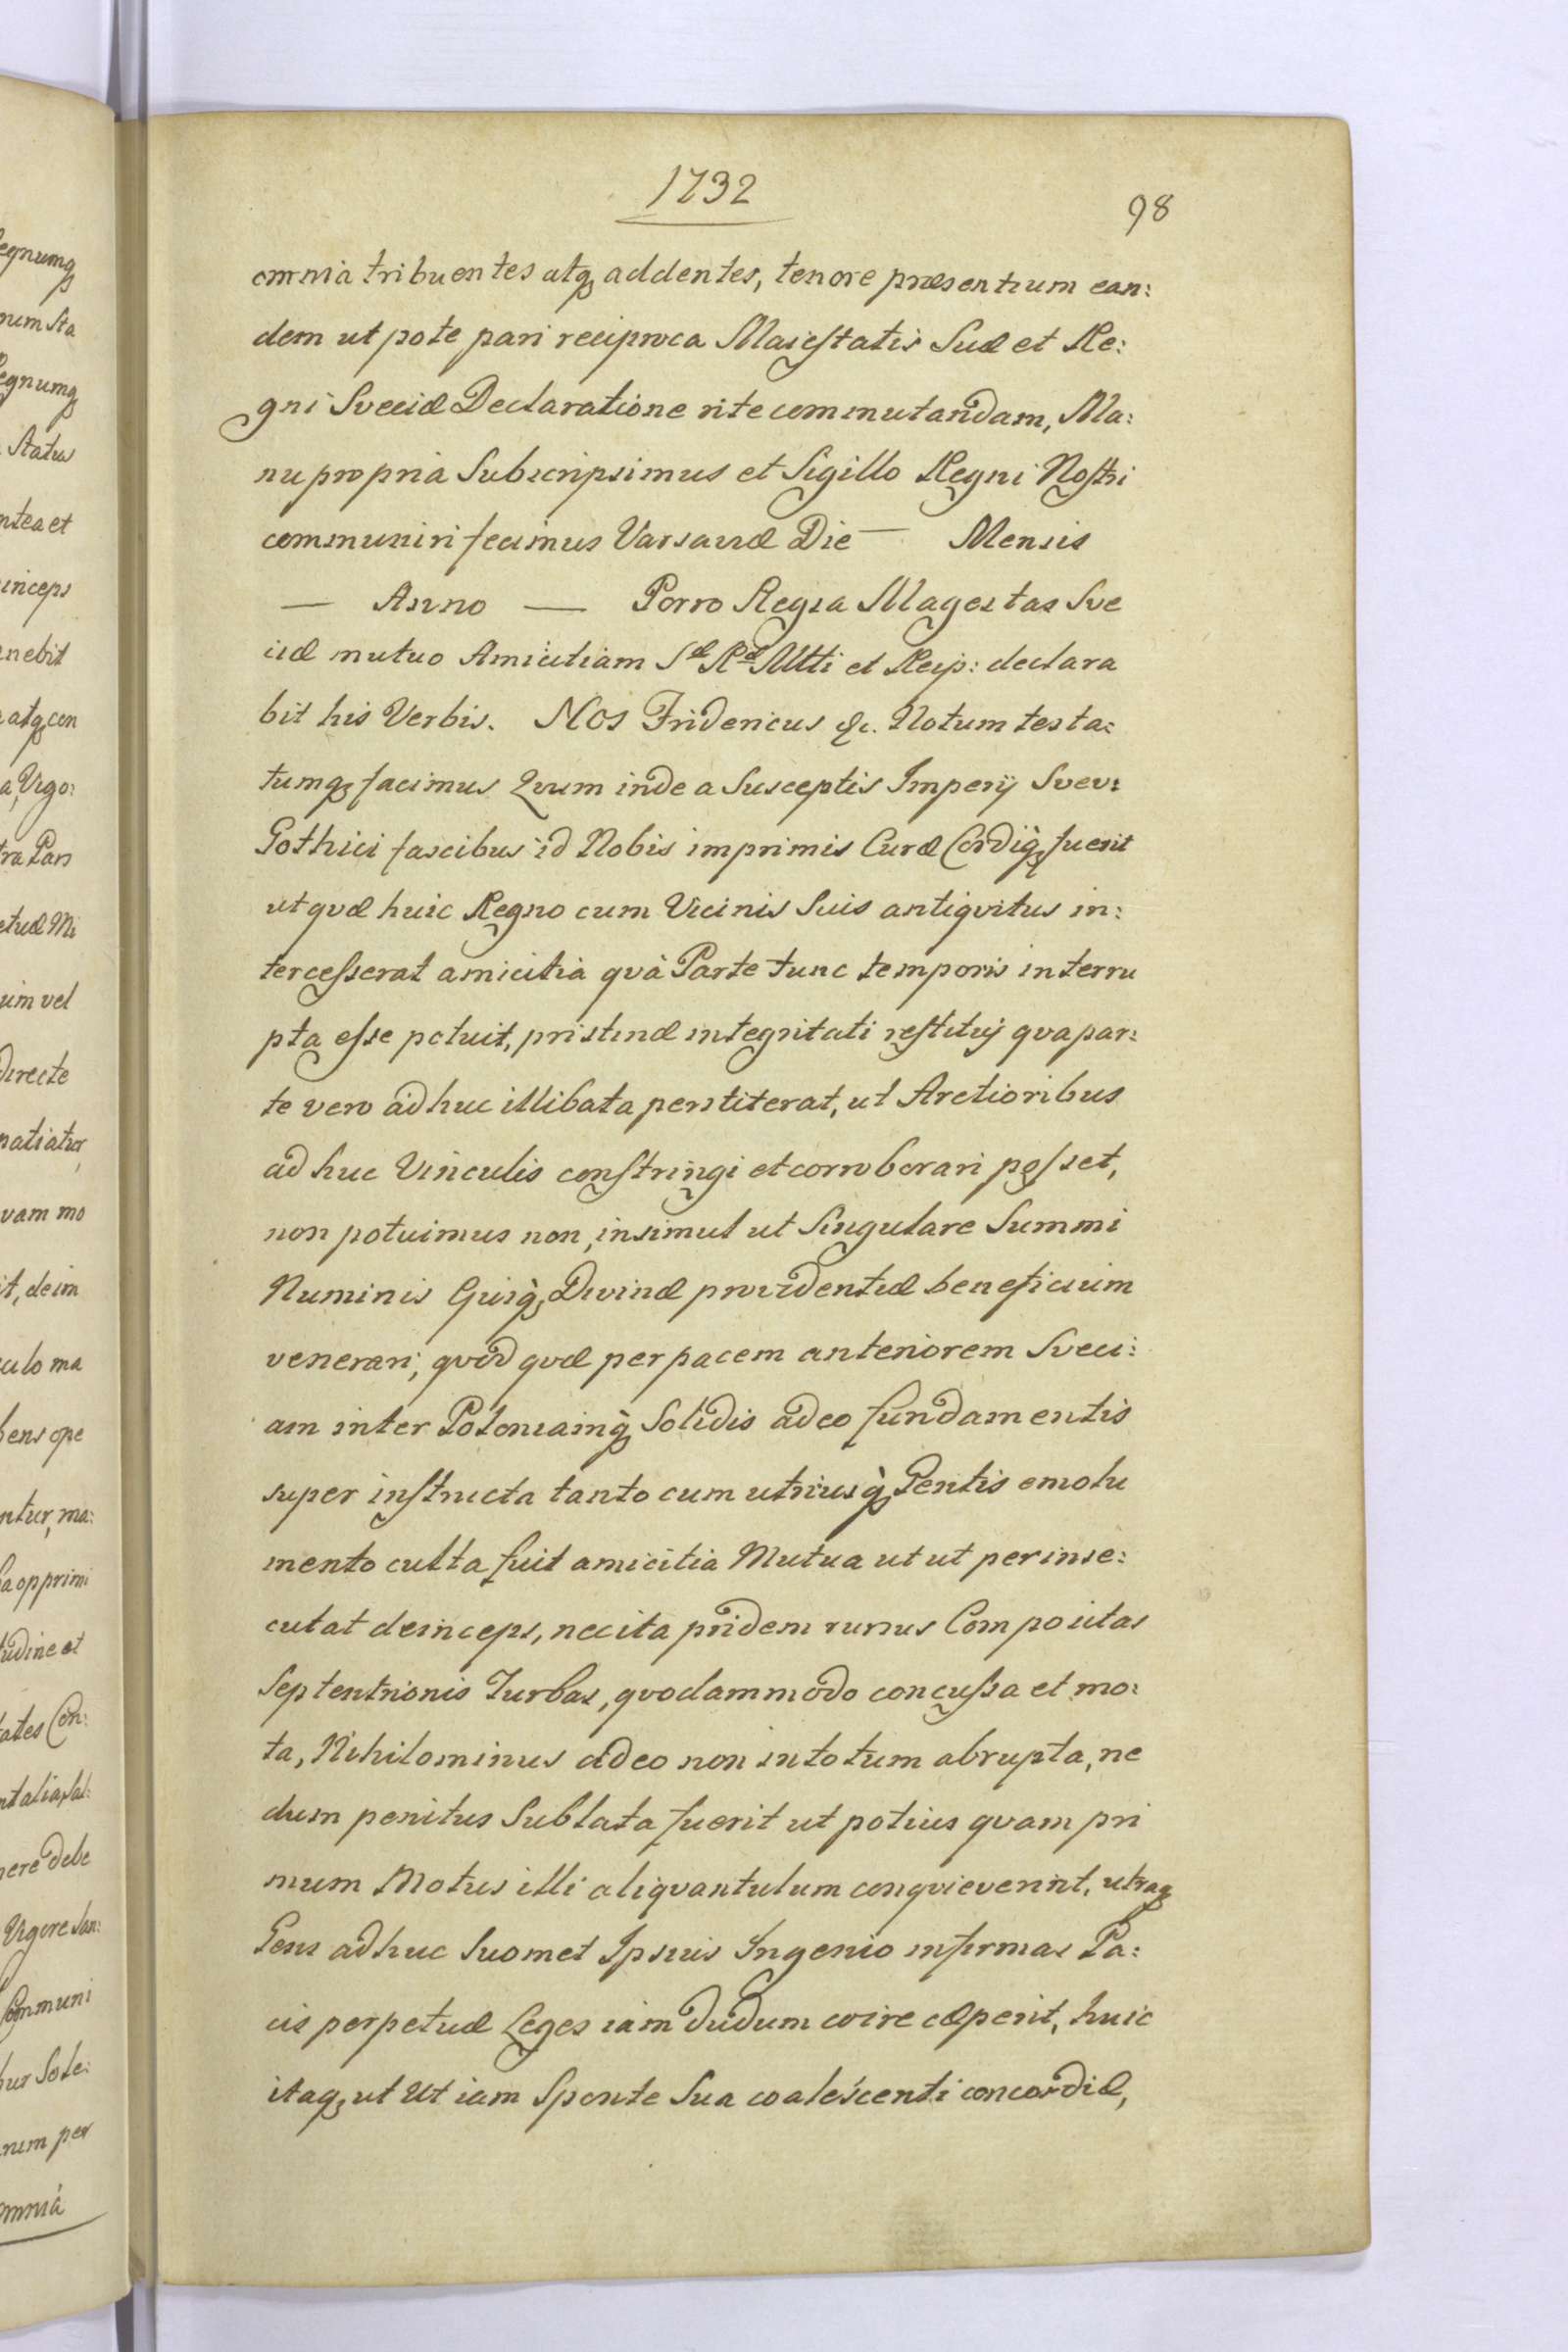 1732
98
omnia tribuentes atq₃ addentes, tenore præsentium ean:
dem ut pote pari reciproca Maiestatis Suæ et Re:
gni Sveciæ Declaratione rite commutandam, Ma:
nu propria Subscripsimus et Sigillo Regni Nostri
communiri fecimus Varsaviæ Die — Mensis
— Anno — Porro Regia Magestas Sve
ciæ mutuo Amicitiam Sæ Ræ Mtti et Reip: declara
bit his Verbis. NOS Fridericus &c. Notum testa:
tumq₃ facimus Qvum inde a Susceptis Imperij Svev:
Gothici fascibus id Nobis imprimis Curæ Cordiq₃ fuerit
ut qvæ huic Regno cum Vicinis Suis antiqvitus in:
tercesserat amicitia qvà Parte tunc temporis interru
pta esse potuit, pristinæ integritati restitui qvapar:
te vero adhuc illibata perstiterat, ut Arctioribus
ad huc Vinculis constringi et corroborari posset,
non potuimus non, insimul ut Singulare Summi
Numinis Eiusq₃ Divinæ providentiæ beneficium
venerari, qvod qvæ per pacem anteriorem Sveci:
am inter Poloniamq₃ Solidis adeo fundamentis
super instructa tanto cum utriusq₃ Gentis emolu
mento culta fuit amicitia Mutua ut ut per inse:
cutat deinceps, nec ita pridem rursus Compositas
Septentrionis Turbas, qvodammodo concussa et mo:
ta, Nihilominus adeo non in totum abrupta, ne
dum penitus Sublata fuerit ut potius qvam pri
mum Motus illi aliqvantulum conqvieverint, utraq₃
Gens adhuc Suomet Ipsius Ingenio in firmas Pa:
cis perpetuæ Leges iam dudum coire cæperit, huic
itaq₃ ut Ut iam Sponte Sua coalescenti concordiæ,
egnumq₃
num Sta
egnumq₃
Status
ntea et
inceps
nebit
atq₃ con
a, Vigo:
tra Pan
etuæ Mi
uim vel
directe
patiatur
vam mo
it, de im
culo ma
bens ope
ntur, ma:
a opprimi
tudine et
tates Con:
ntalia, sal:
nere debe
Vigore San:
Communi
bur Sole:
num per
omnia